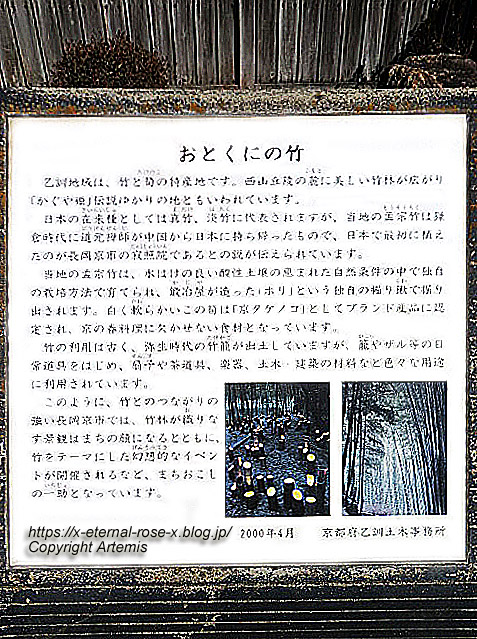 おとくにの竹
乙訓地域は、竹と筍の特産地です。西山丘陵の麓に美しい竹林が広がり
「かぐや姫」伝説ゆかりの地ともいわれています。
日本の在来種としては真竹、淡竹に代表されますが、当地の孟宗竹は鎌
倉時代に道元禅師が中国から日本に持ち帰ったもので、日本で最初に植え
たのが長岡京市の寂照院であるとの説が伝えられています。
当地の孟宗竹は、水はけの良い酸性土壌の恵まれた自然条件の中で独自
の栽培方法で育てられ、鍛冶屋が造った「ホリ」という独自の鍬で掘り
出されます。白く軟らかいこの筍は「京タケノコ」としてブランド産品に認
定され、京の春料理に欠かせない食材となっています。
竹の利用は古く、弥生時代の竹籠が出土していますが、籠やザル等の日
常道具をはじめ、扇子や茶道具、楽器、土木・建築の材料など色々な用途
に利用されています。
このように、竹とのつながりの
強い長岡京市では、竹林が織りな
す景観はまちの顔になるとともに、
竹をテーマにした幻想的なイベン
トが開催されるなど、まちおこし
の一助となっています。
2000年4月 京都府乙訓土木事務所
https://x-eternal-rose-x.blog.jp/
Copyright Artemis